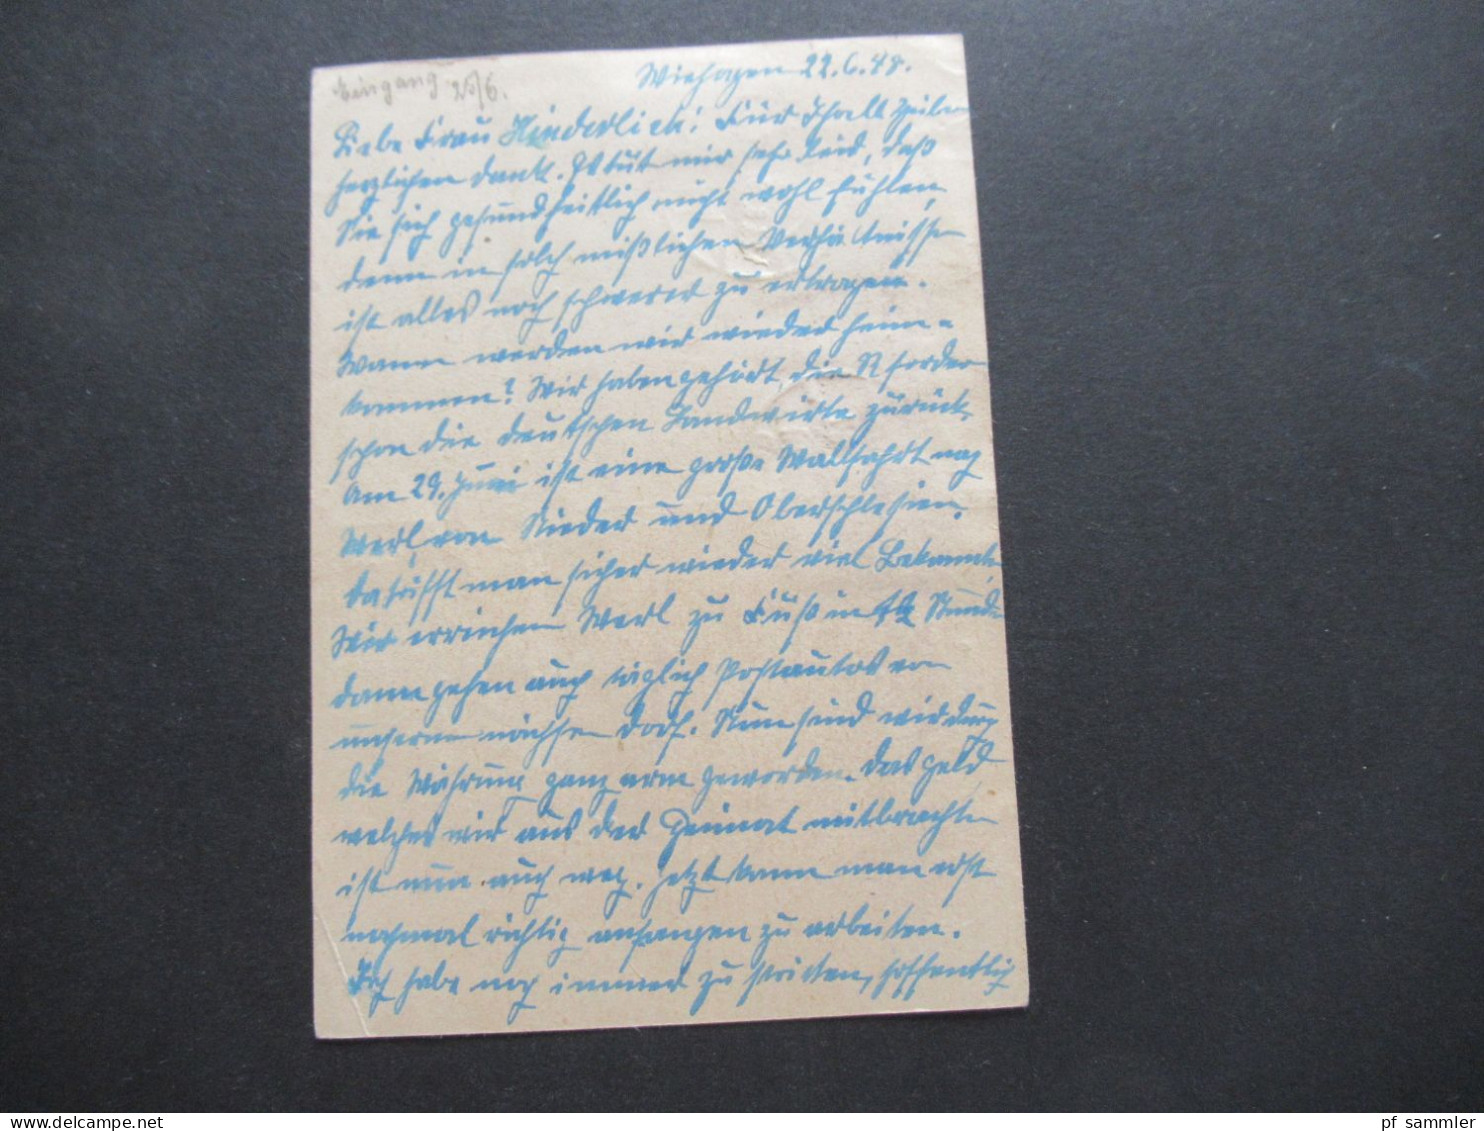 Eingang 25/6.
Wiehagen 22.6.48.
Liebe Frau Hinderlich! Für Ihre Zeilen
herzlichen Dank. Es tut mir sehr leid, daß
Sie sich gesundheitlich nicht wohl fühlen,
denn in solch mißlichen Verhältnisse
ist alles noch schwerer zu ertragen.
Wann werden wir wieder heim-
kommen? Wir haben gehört, die R fordern
schon die deutschen Landwirte zurück.
Am 29. Juni ist eine große Wallfahrt nach
Werl, von Nieder und Oberschlesien.
da trifft man sicher wieder viel Bekannte
Wir erreichen Werl zu Fuß in Stunde
dann gehen auch täglich Postautos von
unserem nächsten Dorf. Nun sind wir durch
die Währung ganz arm geworden. Das Geld
welches wir aus der Heimat mitbrachten
ist nun auch weg. Jetzt kann man erst
nochmal richtig anfangen zu arbeiten.
Ich habe noch immer zu stricken, hoffentlich
pf sammler